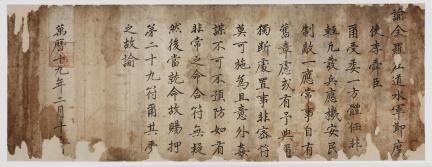 諭全羅左道水軍節度
使李舜臣
爾受委一方體任非
輕凡發兵應機安民
制敵一應常事自有
舊章慮或有予與爾
獨斷處置事非密符
莫可施爲且意外奸
謀不可不預防如有
非常之命合符無疑
然後當就命故賜押
第二十九符爾其受
之故諭
萬曆十九年二月十